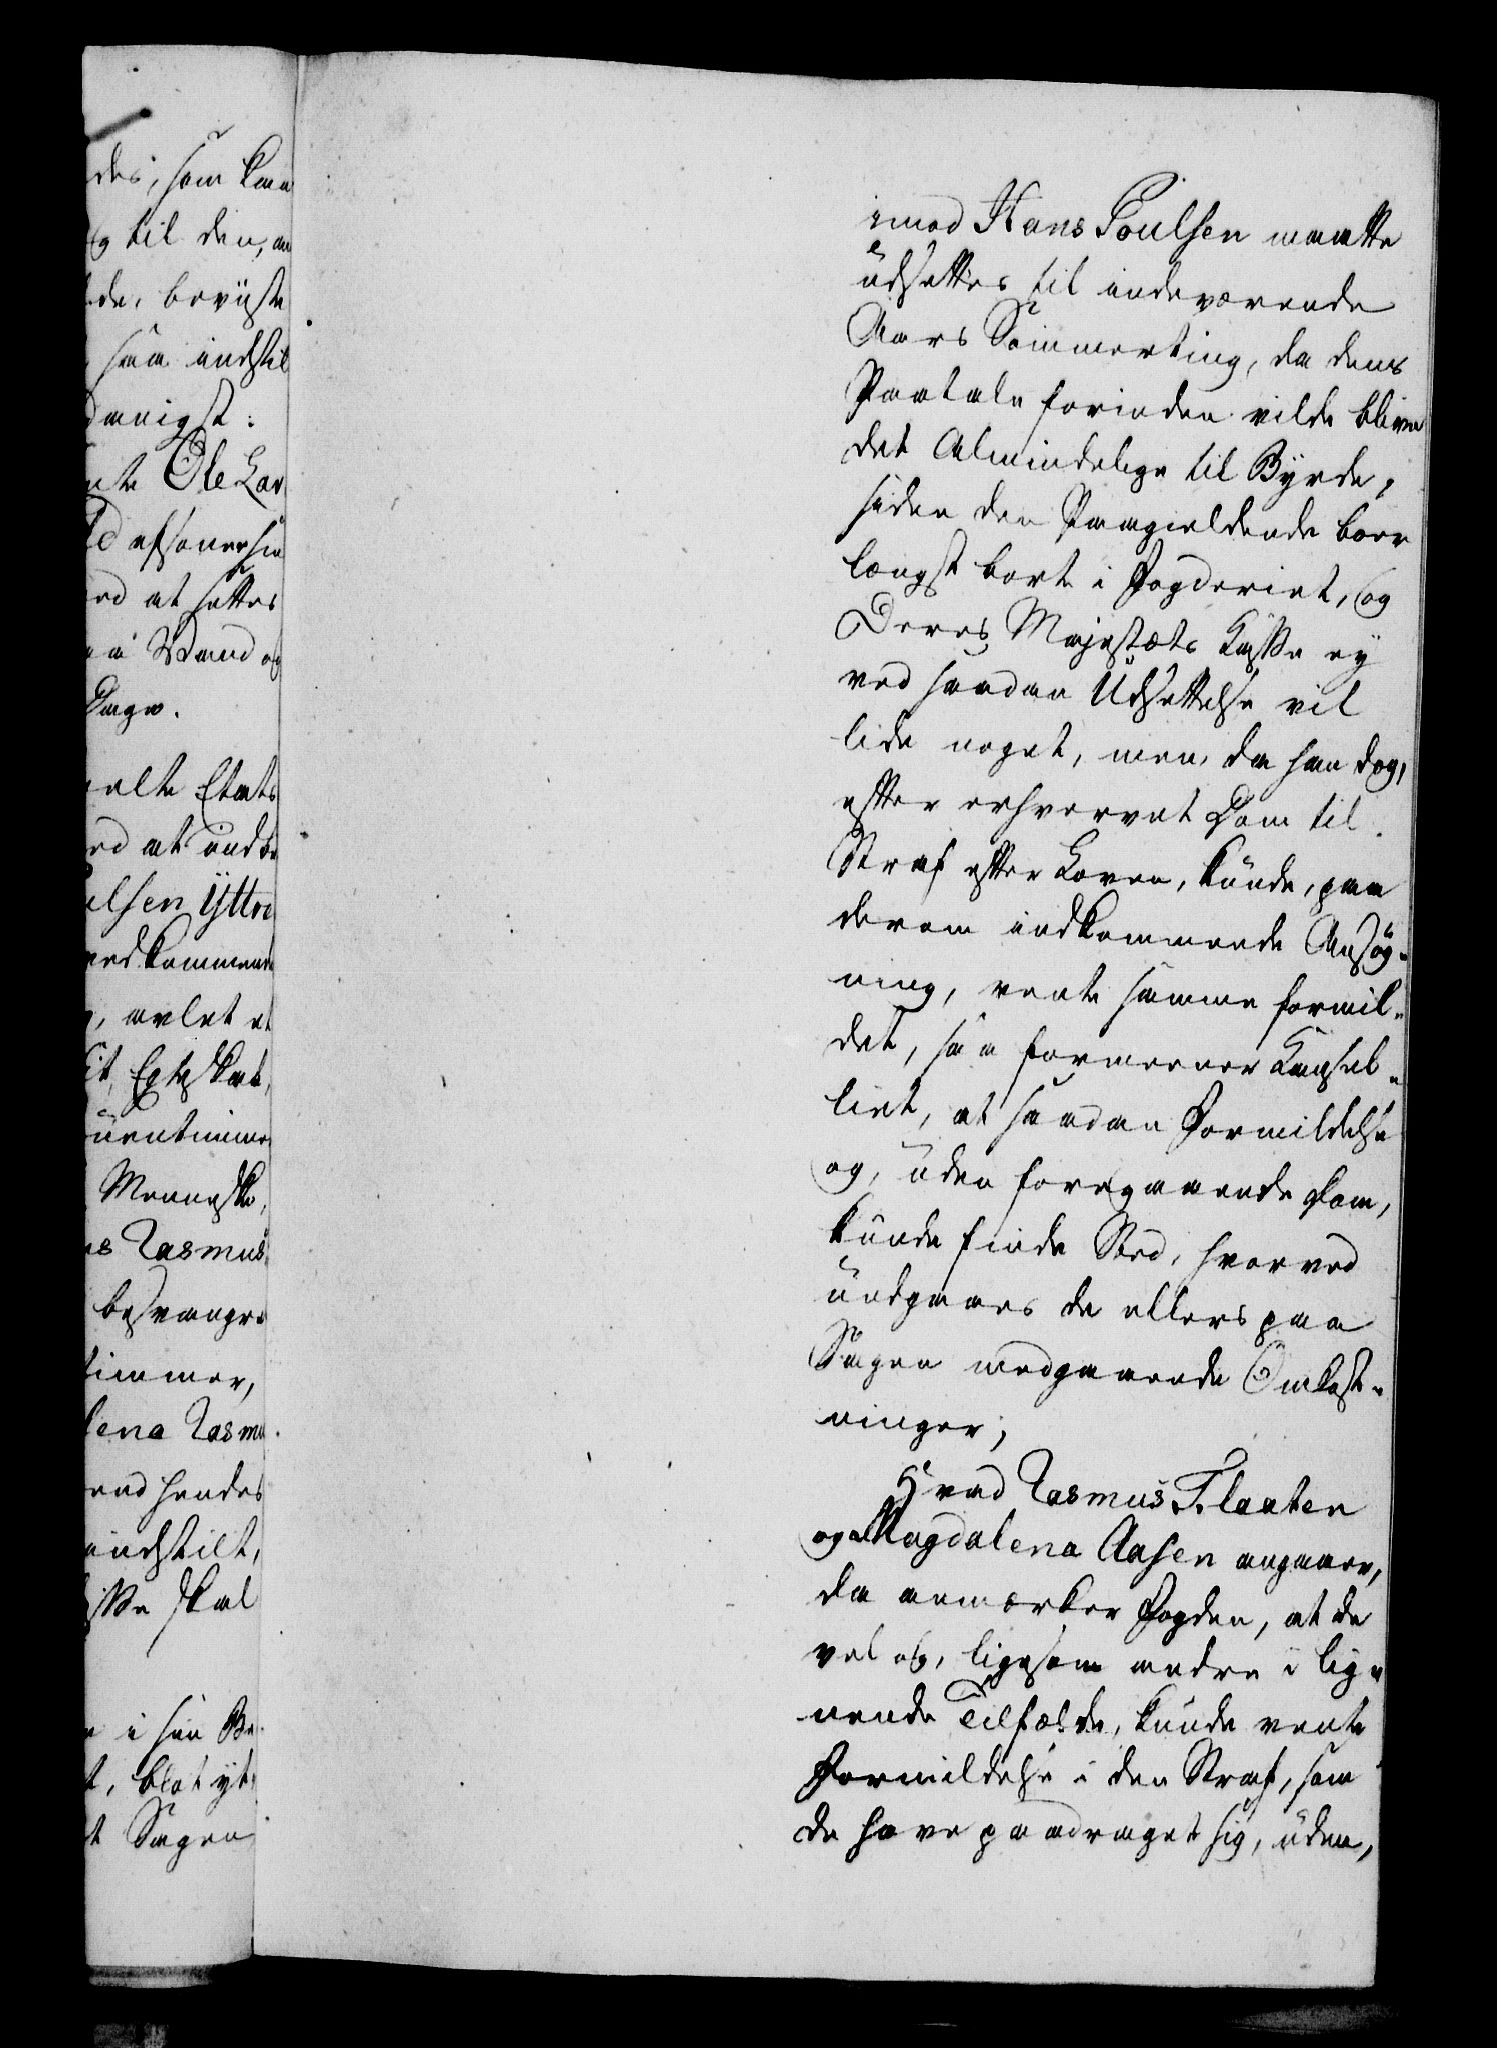 des, som kan
og til den, an
de, beviiste
saa indstil
danigst:
nte Ole Lar
ld afsoner sin
ed at sættes
paa Vand og
Dage.
melte Etats
ed at indbe
ulsen Ÿttre
vedkommende
, avlet et
it Egteskab,
uentimmer
Menneske,
ns Rasmus
besvangre
timmer,
lena Rasmu
end hendes
indstilt,
isse skal
e i sin Be
t, blot yt
t Sagen
imod Hans Poulsen maatte
udsættes til indeværende
Aars Sommerting, da dens
Paatale forinden vilde blive
det Almindelige til Byrde,
siden den Paagieldende boer
længst borte i Fogderiet, og
Deres Majestæts Kasse ey
ved saadan Udsættelse vil
lide noget, men, da han dog,
efter erhvervet Dom til
Straf efter Loven, kunde, paa
derom indkommende Ansøg-
ning, vente samme formil-
det, saa formeener Canzel-
liet, at saadan Formildelse
og, uden foregaaende Dom,
kunde finde Sted, hvorved
undgaaes de ellers paa
Sagen medgaaende Omkost-
ninger;
Hvad Rasmus Flaaten
og Magdalena Aasen angaaer,
da anmærker Fogden, at de
vel og, ligesom andre i lig-
nende Tilfælde, kunde vente
Formildelse i den Straf, som
de have paadraget sig, uden,